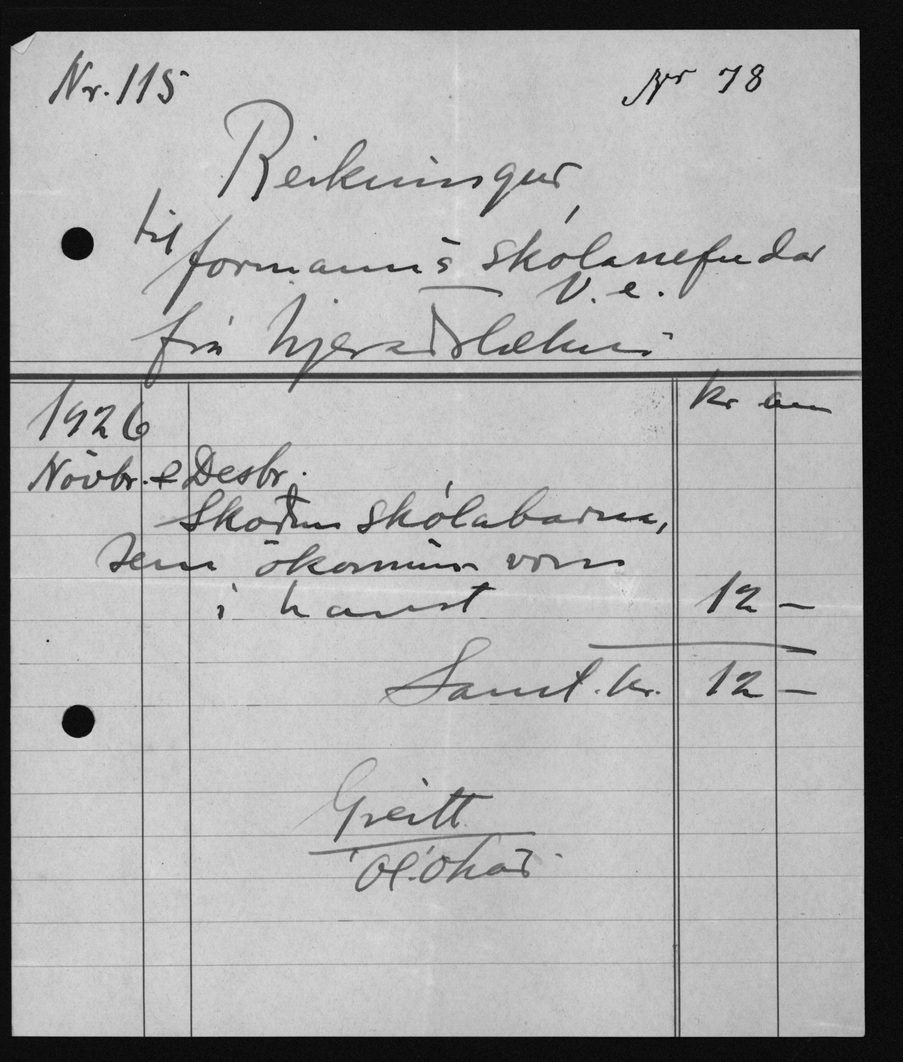 Nr. 115
Nr 78
Reikningur
til formanns skólanefndar
V. e.
frá hjeraðslækni
kr au
1926
Nóvbr. & Desbr.
Skoðun skólabarna,
sem ókomin voru
í haust 12 —
Samt. kr. 12 —
Greitt
Ól. Ó.